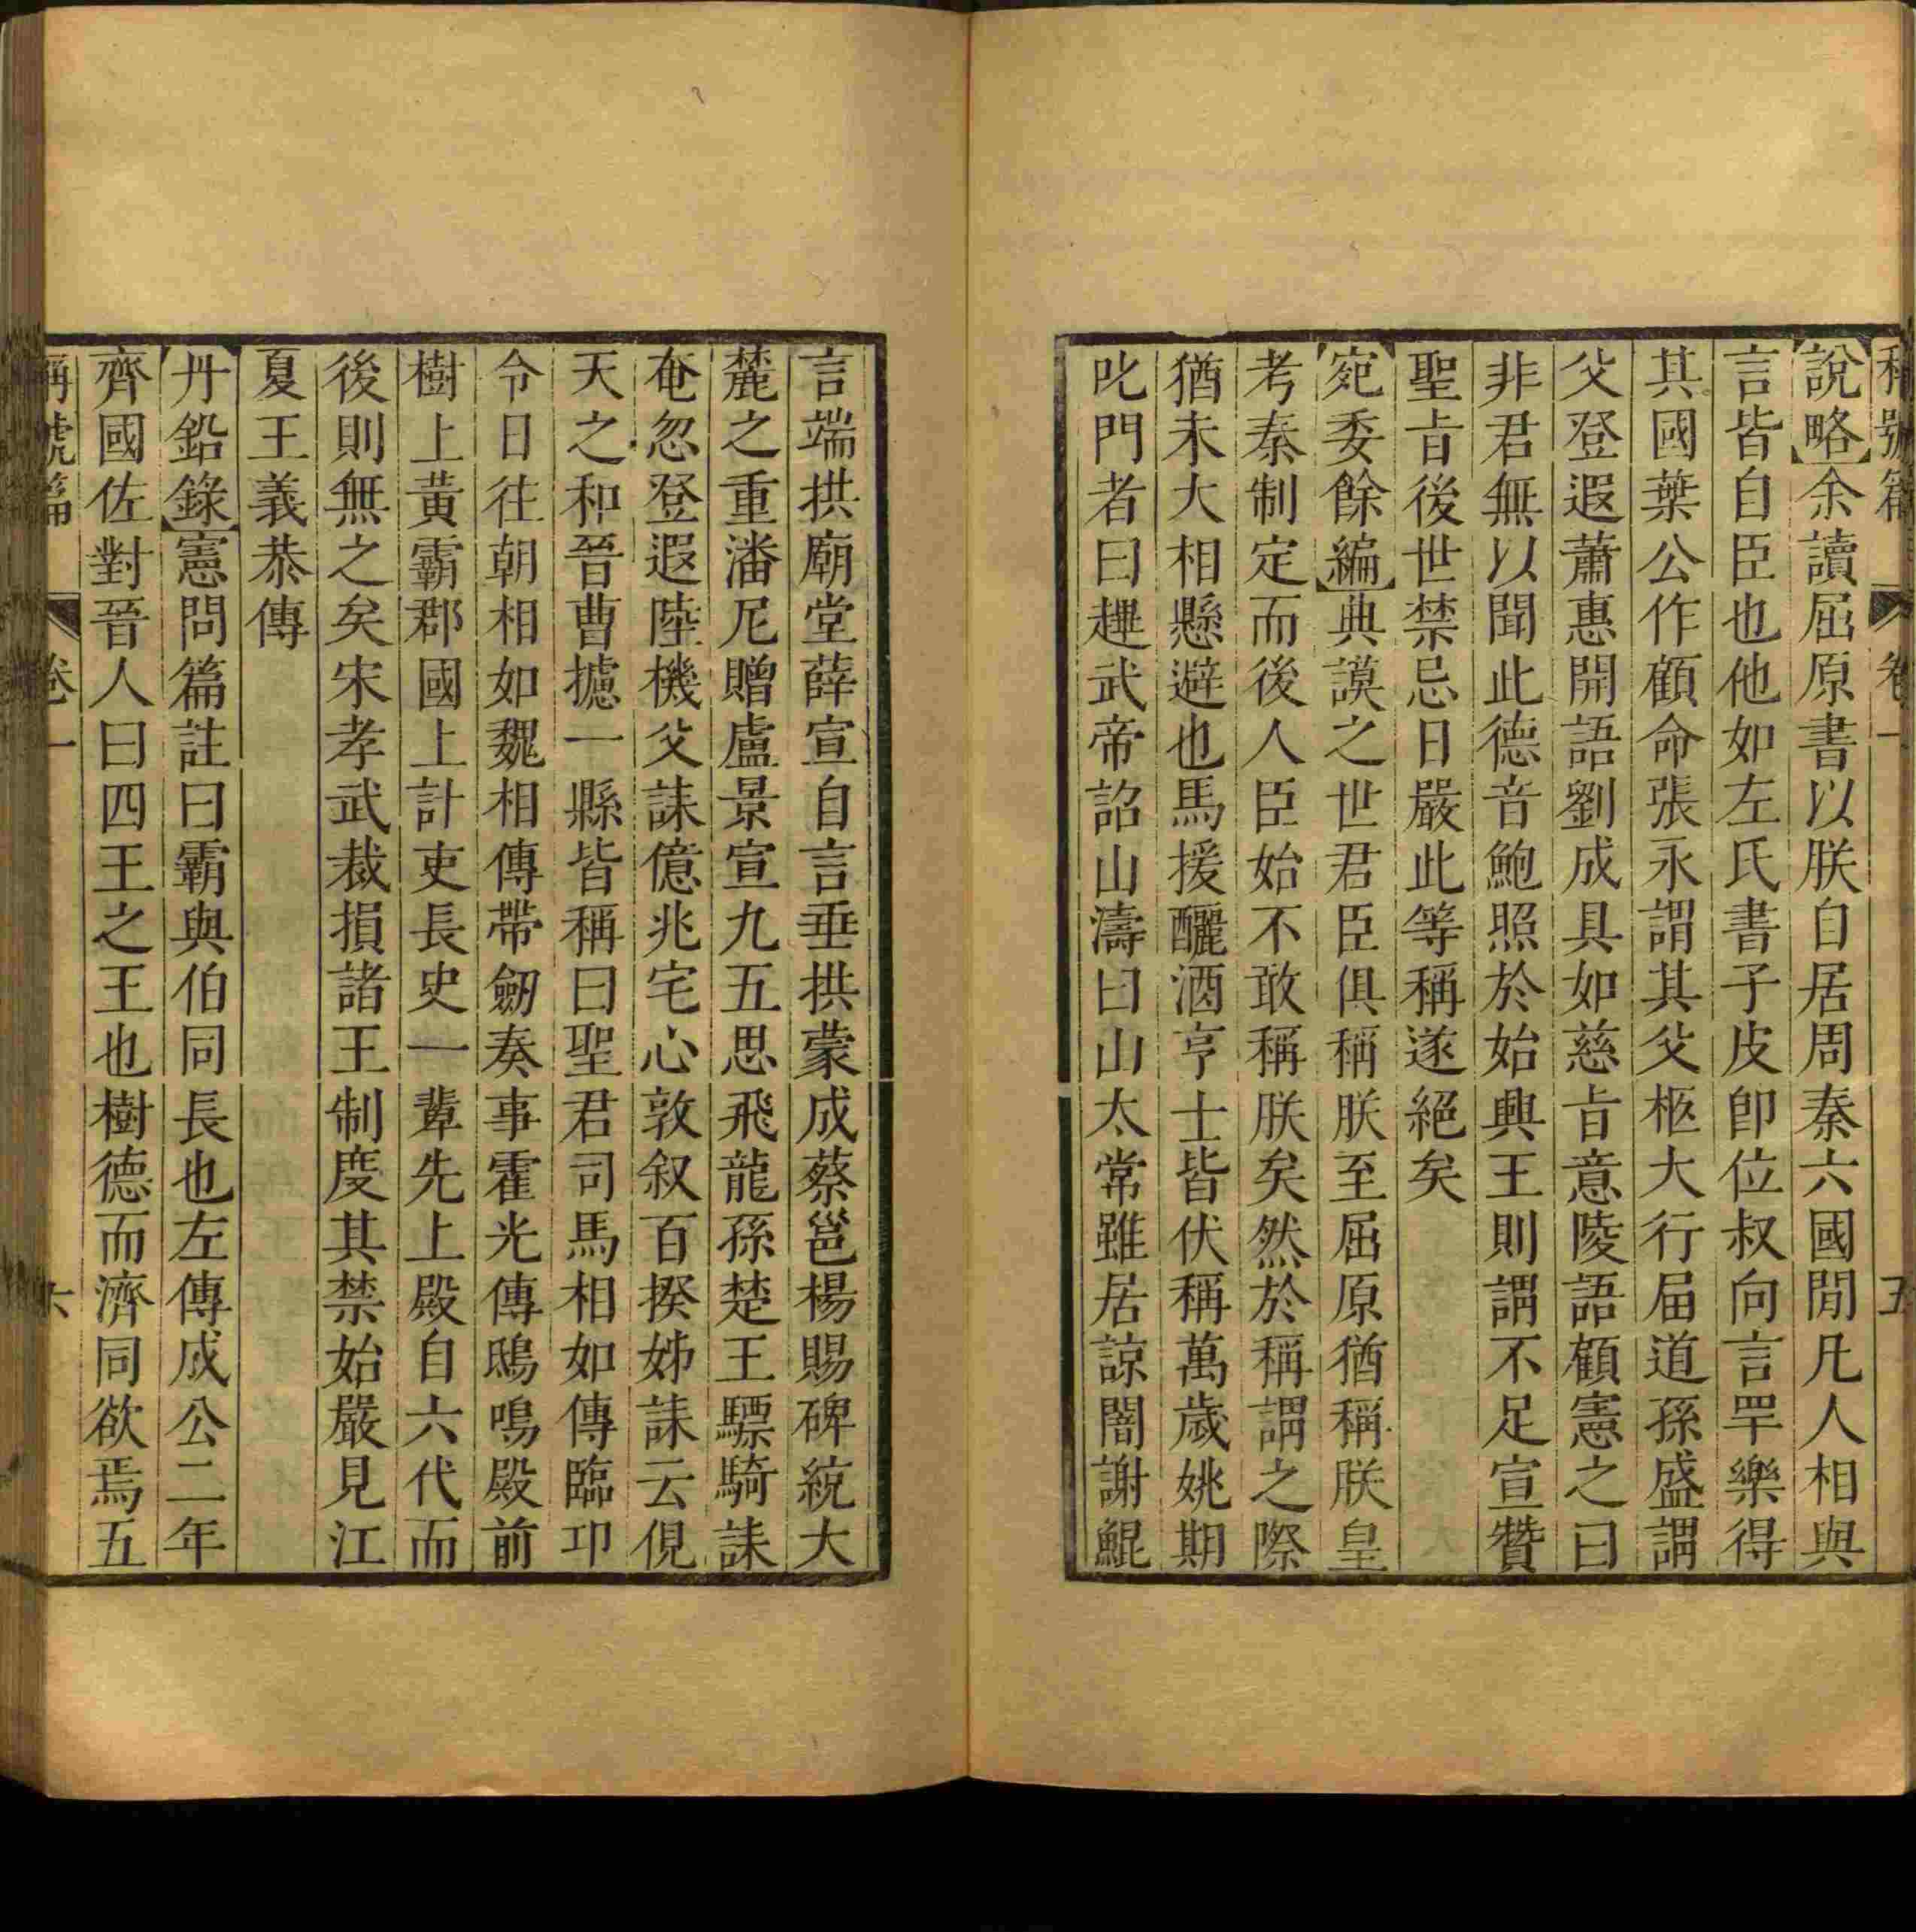 稱號篇 卷一 五
說略余讀屈原書以朕自居周秦六國閒凡人相與
言皆自臣也他如左氏書子皮卽位叔向言罕樂得
其國葉公作顧命張永謂其父柩大行届道孫盛謂
父登遐蕭惠開語劉成具如慈旨意陵語顧憲之曰
非君無以聞此德音鮑照於始興王則謂不足宣贊
聖旨後世禁忌日嚴此等稱遂絕矣
宛委餘編典謨之世君臣俱稱朕至屈原猶稱朕皇
考秦制定而後人臣始不敢稱朕矣然於稱謂之際
猶未大相懸避也馬援釃酒亨士皆伏稱萬歲姚期
叱門者曰趩武帝詔山濤曰山太常雖居諒闇謝鯤
言端拱廟堂薛宣自言垂拱蒙成蔡邕楊賜碑統大
麓之重潘尼贈盧景宣九五思飛龍孫楚王驃騎誄
奄忽登遐陸機父誄億兆宅心敦叙百揆姊誄云俔
天之和晉曹攄一縣皆稱曰聖君司馬相如傳臨卭
令日往朝相如魏相傳帶劒奏事霍光傳鴟鳴殿前
樹上黃霸郡國上計吏長史一輩先上殿自六代而
後則無之矣宋孝武裁損諸王制度其禁始嚴見江
夏王義恭傳
丹鉛錄憲問篇註曰霸與伯同長也左傳成公二年
齊國佐對晉人曰四王之王也樹德而濟同欲焉五
稱號篇 卷一 六